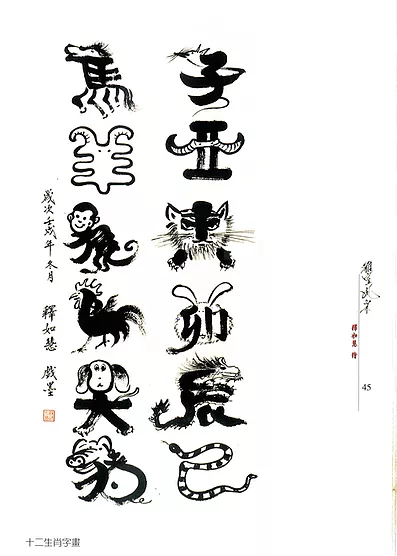 子
丑
寅
卯
辰
巳
馬
羊
猴
犬
豬
歲次壬戌年冬月 釋如慧 戲墨
釋如慧 繪
45
十二生肖字畫